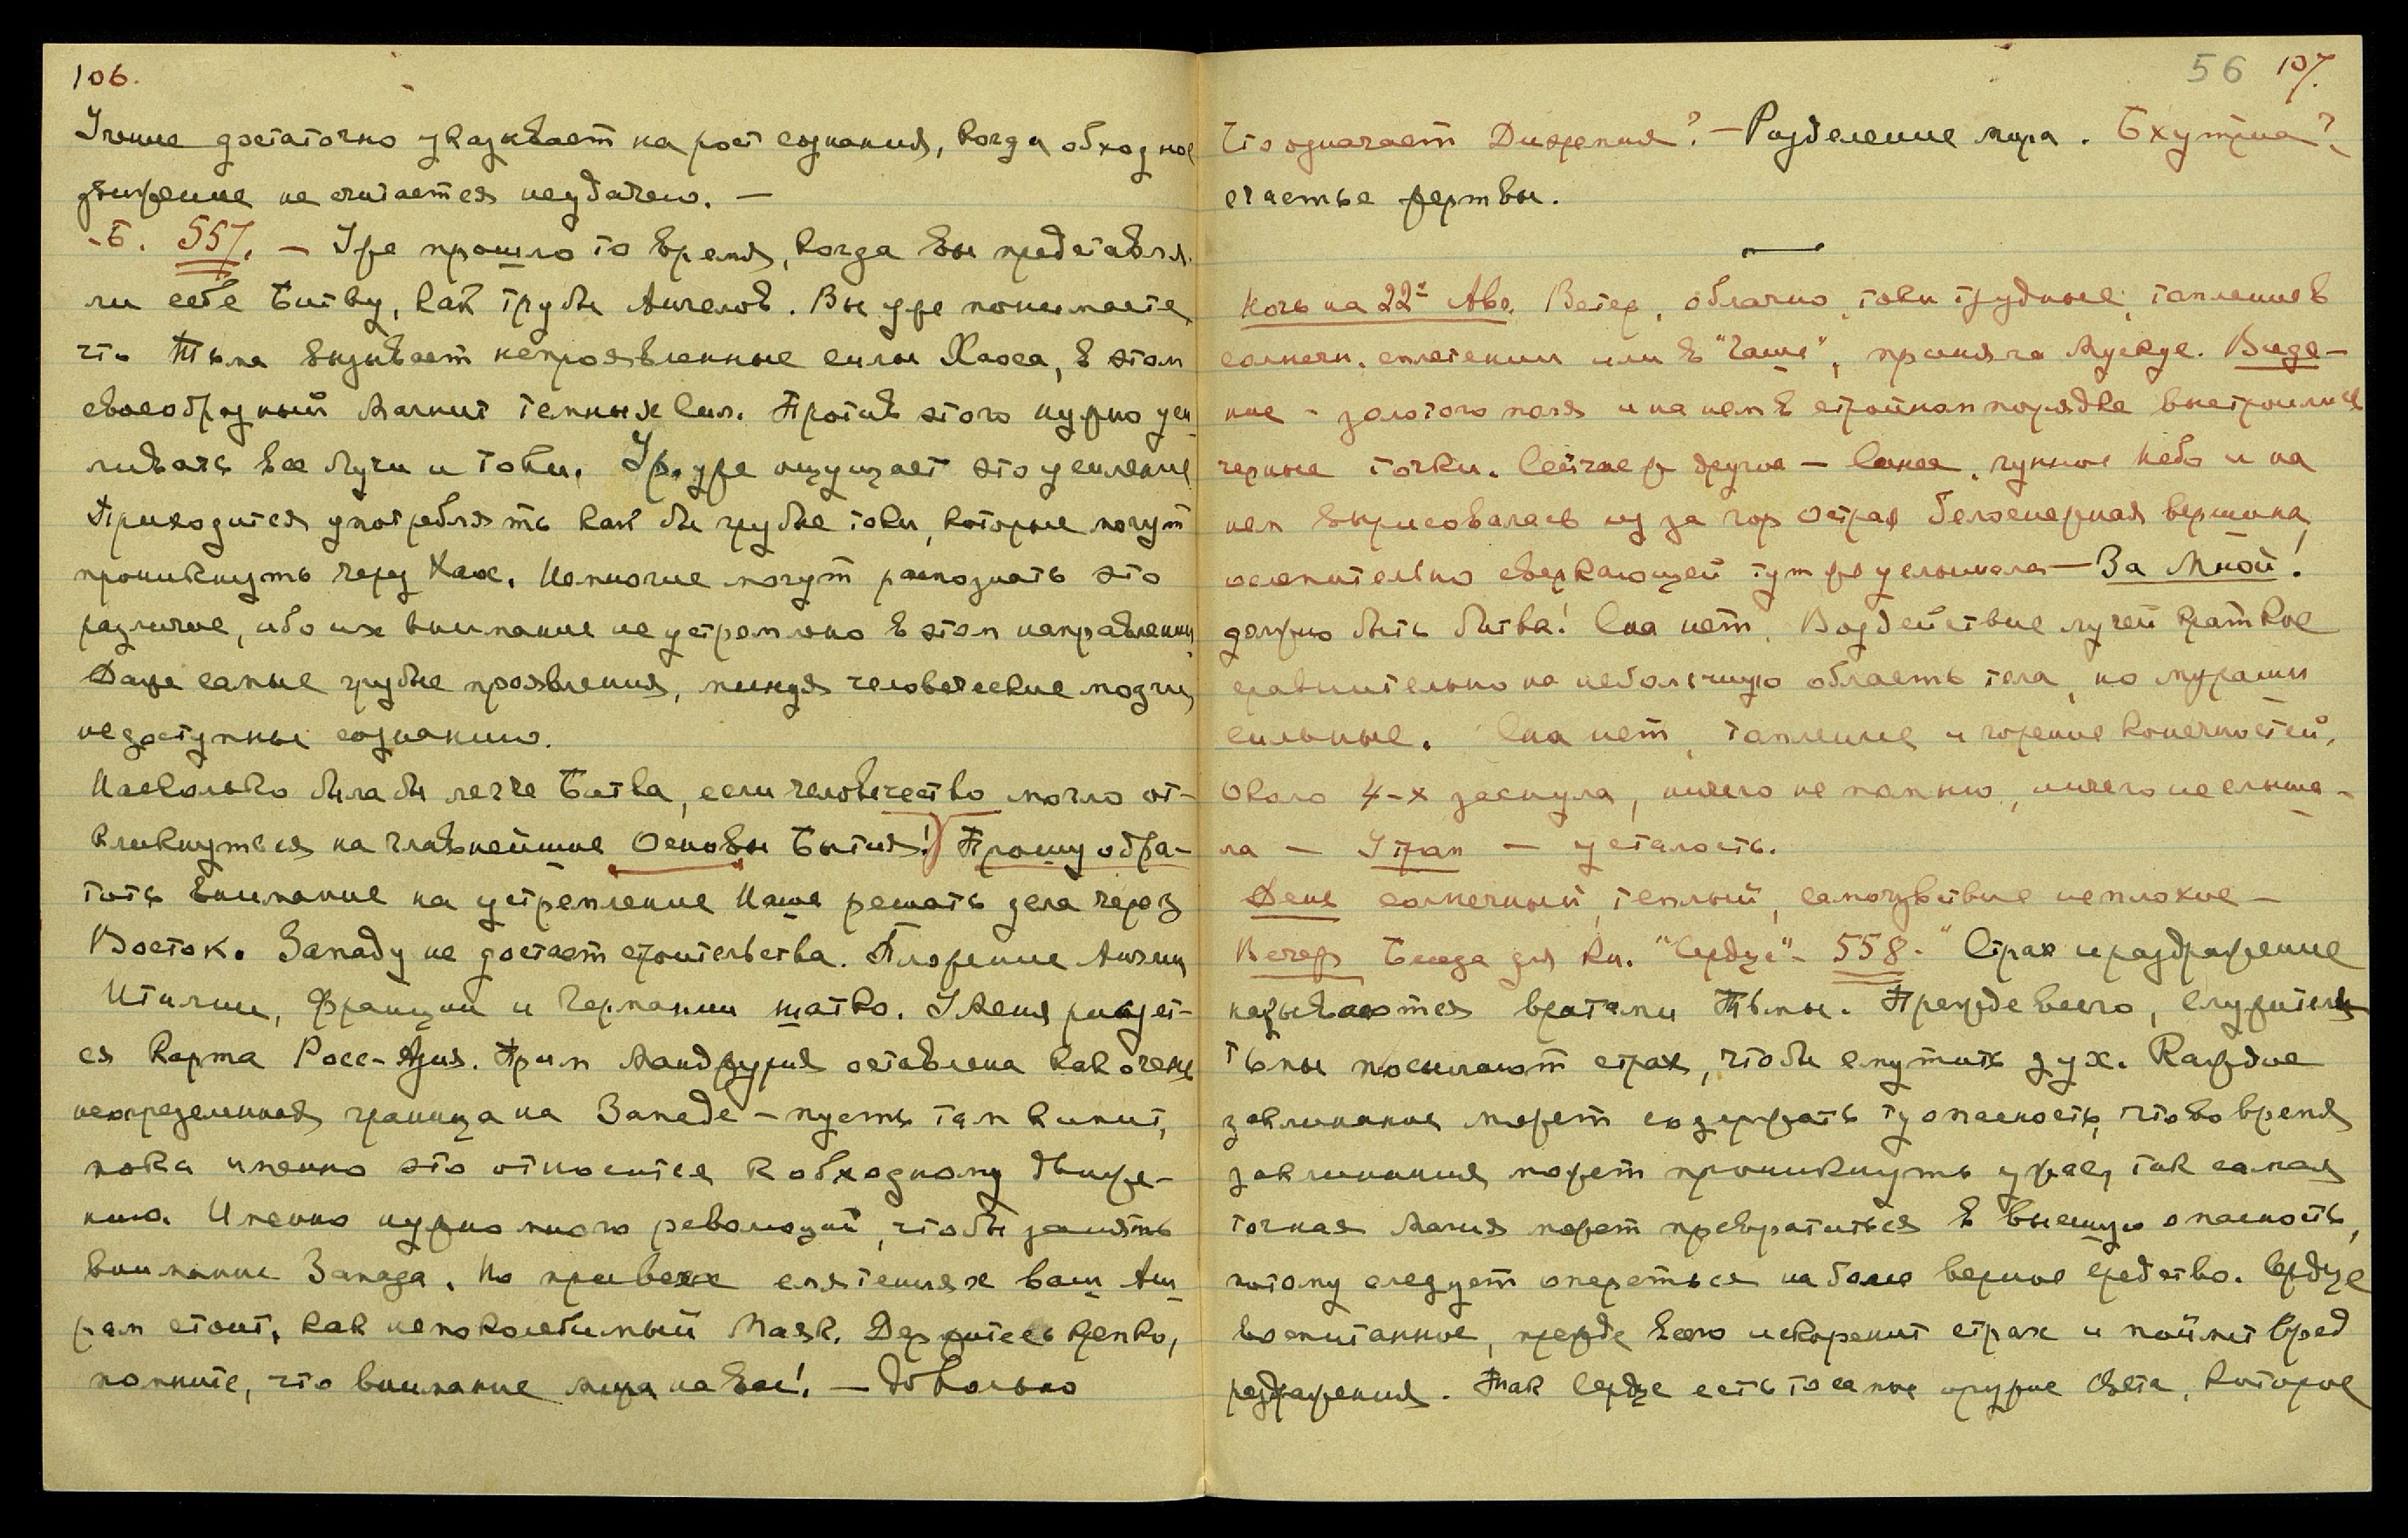 106.
Учение достаточно указывает на рост сознания, когда обходное
движение не считается неудачею. —
-Б. 557. — Уже прошло то время, когда вы представля-
ли себе Битву, как трубы Ангелов. Вы уже понимаете,
что Тьма вызывает непроявленные силы Хаоса, в этом
своеобразный магнит темных сил. Против этого нужно уси-
ливать все лучи и токи. Ур. уже ощущает это усиление
Приходится употреблять как бы грубые токи, которые могут
проникнуть через Хаос. Немногие могут распознать это
различие, ибо их внимание не устремлено в этом направлении.
Даже самые грубые проявления, минуя человеческие мозги,
недоступны сознанию.
Насколько была бы легче Битва, если человечество могло от-
кликнуться на главнейшие Основы Бытия! Прошу обра-
тить внимание на устремление Наше решать дела через
Восток. Западу не достает строительства. Положение Англии
Италии, Франции и Германии шатко. У Меня рисует-
ся карта Росс-Азия. Прим Манджурия оставлена как очень
неопределенная граница на Западе — пусть там кипит,
пока именно это относится к обходному движе-
нию. Именно нужно много революций, чтобы занять
внимание Запада. Но при всех смятениях ваш Аш-
рам стоит, как непоколебимый Маяк. Держитесь крепко,
помните, что внимание мира на вас! — Довольно
56 107.
Что означает Дижения? — Разделение мира. Бхутриа?
счастье жертвы.
Ночь на 22ое Авг. Ветер, облачно, токи трудные, томление в
солнечн. сплетении или в "Чаше", приняла Мускус. Виде-
ние — золотого поля и на нем в стройном порядке выстроились
черные точки. Сейчас ж другое — Синее, лунное Небо и на
нем вырисовалась из за гор острая белоснежная вершина,
ослепительно сверкающей тут же услышала — За Мной!
должно быть битва! Сна нет. Воздействие лучей краткое
сравнительно на небольшую область тела, но мурашки
сильные. Сна нет, томление и горение конечностей.
Около 4-х заснула, ничего не помню, ничего не слыша-
ла — Утром — усталость.
День солнечный, теплый, самочувствие неплохое —
Вечер Беседа для кн. "Сердце" - 558. " Страх и раздражение
называются вратами Тьмы. Прежде всего, служители
тьмы посылают страх, чтобы смутить дух. Каждое
заклинание может содержать ту опасность, что во время
заклинания может проникнуть ужас, так самая
точная магия может превратиться в высшую опасность,
потому следует опереться на более верное средство. Сердце
воспитанное, прежде всего искоренит страх и поймет вред
раздражения. Так Сердце есть то самое оружие Света, которое